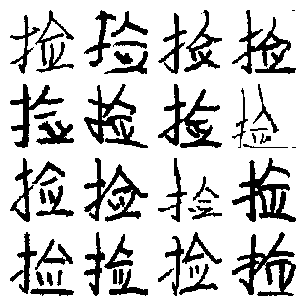 捡捡捡捡
捡捡捡捡
捡捡捡捡
捡捡捡捡